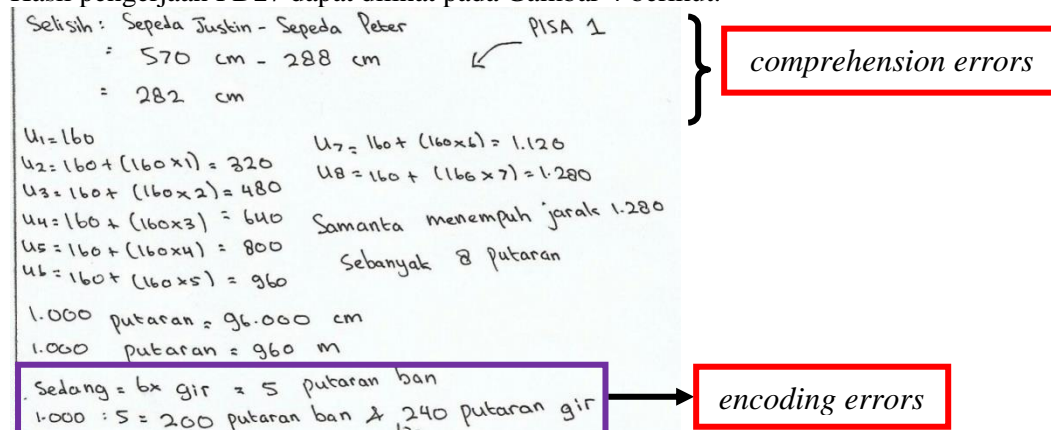 Selisih : Sepeda Justin - Sepeda Peter
PISA 1
: 570 cm - 288 cm
= 282 cm
comprehension errors
U1 = 160
U2 = 160 + (160 x 1) = 320
U3 = 160 + (160 x 2) = 480
U4 = 160 + (160x3) = 640
U5 = 160 + (160x4) = 800
U6 = 160 + (160 x 5) = 960
U7 = 160 + (160x6) = 1.120
U8 = 160 + (160 x 7) = 1.280
Samanta menempuh jarak 1.280
Sebanyak 8 Putaran
1.000 putaran = 96.000 cm
1.000 putaran = 960 m
Sedang = 6x gir = 5 putaran ban
1.000 : 5 = 200 putaran ban & 240 putaran gir
encoding errors